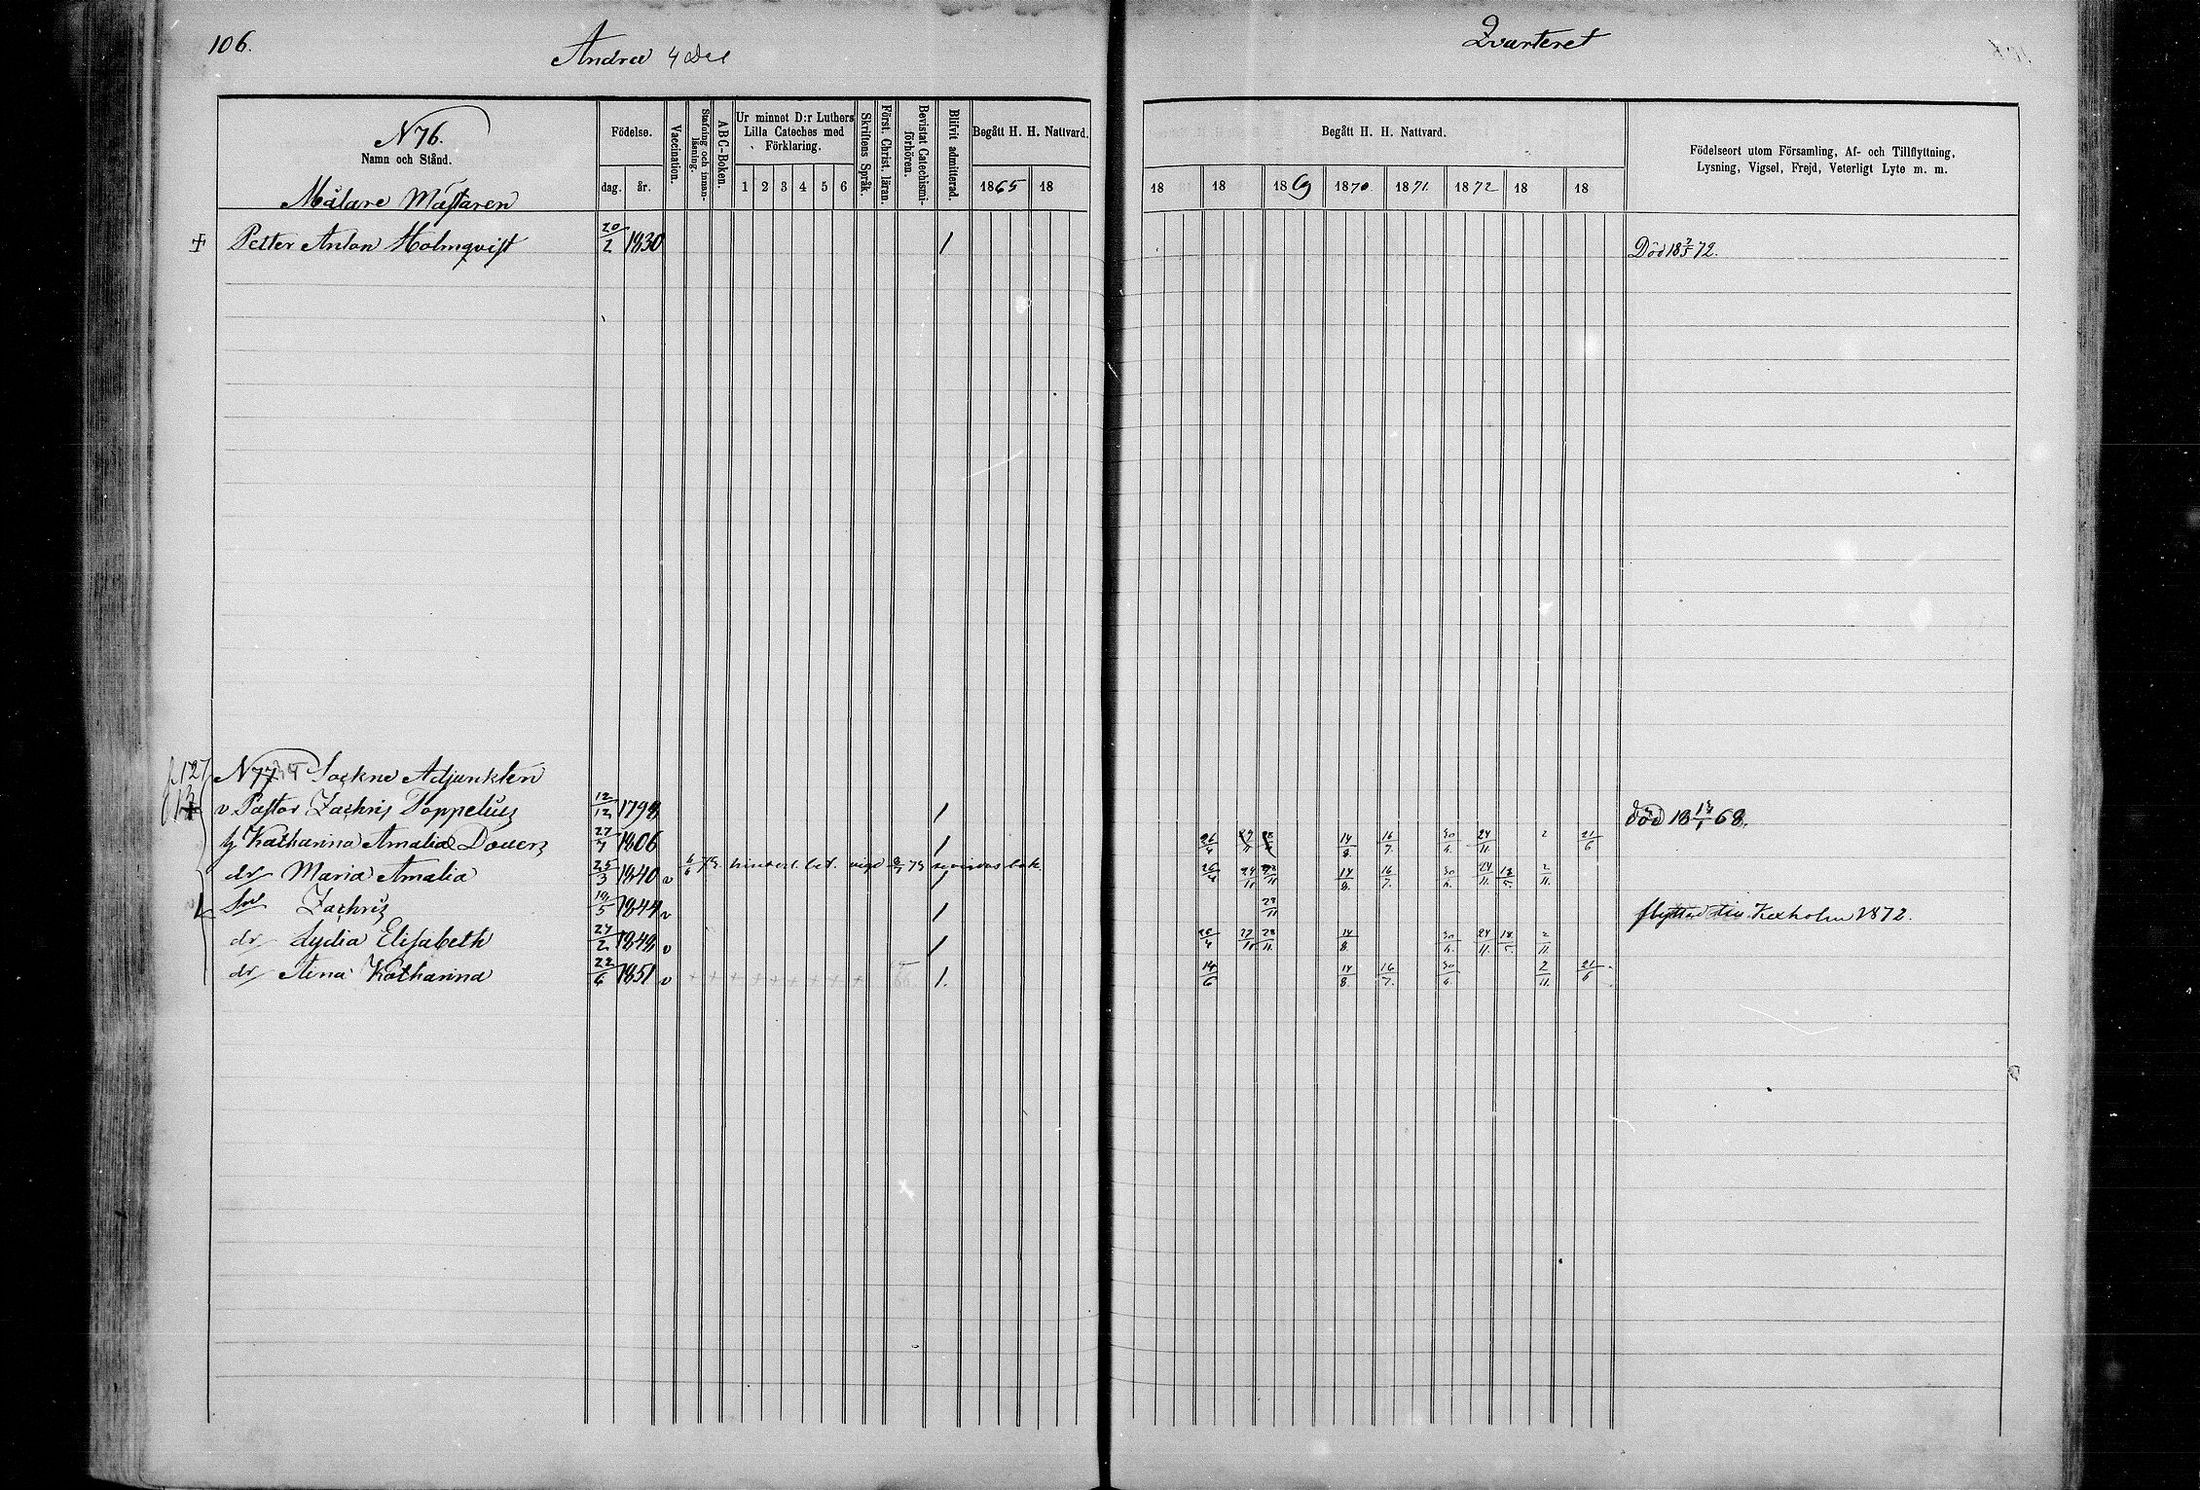 106.
Andra 4 Del
Qvarteret
N 76.
Namn och Stånd.
Målare Mästaren
Födelse.
dag. år.
Vaccination.
Stafning och innanläsning.
A B C-Boken.
Ur minnet D:r Luthers Lilla Cateches med Förklaring.
1 2 3 4 5 6
Skriftens Språk.
Först. Christ. läran.
Bevistat Catechismiförhören.
Blifvit admitterad.
Begått H. H. Nattvard.
1865 18
Begått H. H. Nattvard.
18 18 1869 1870 1871 1872 18 18
Födelseort utom Församling, Af- och Tillflyttning,
Lysning, Vigsel, Frejd, Veterligt Lyte m. m.
Petter Anton Holmqvist 20/2 1830 / Död 18 2/5 72.
p. 127
N 77 Sockne Adjunkten
v. Pastor Zachris Toppelius 12/12 1798 / död 18 68.
h Katharina Amalia 27/7 1806 / 26/4 14/8 16/7 30/4 24/11 2 21/6
dr Maria Amalia 25/3 1840 v 26/4 14/8 16/7 30/4 24/11 2/11
Son Zachris 1844 v / 28/11 flyttad till Kexholm 1872.
dr Lydia Elisabeth 24/2 1848 v / 14/8 30/4 24/11 2/11
dr Lina Katharina 22/6 1851 v + + + + + + + + + 1. 14/6 14/8 16/7 30/4 2/11 21/6